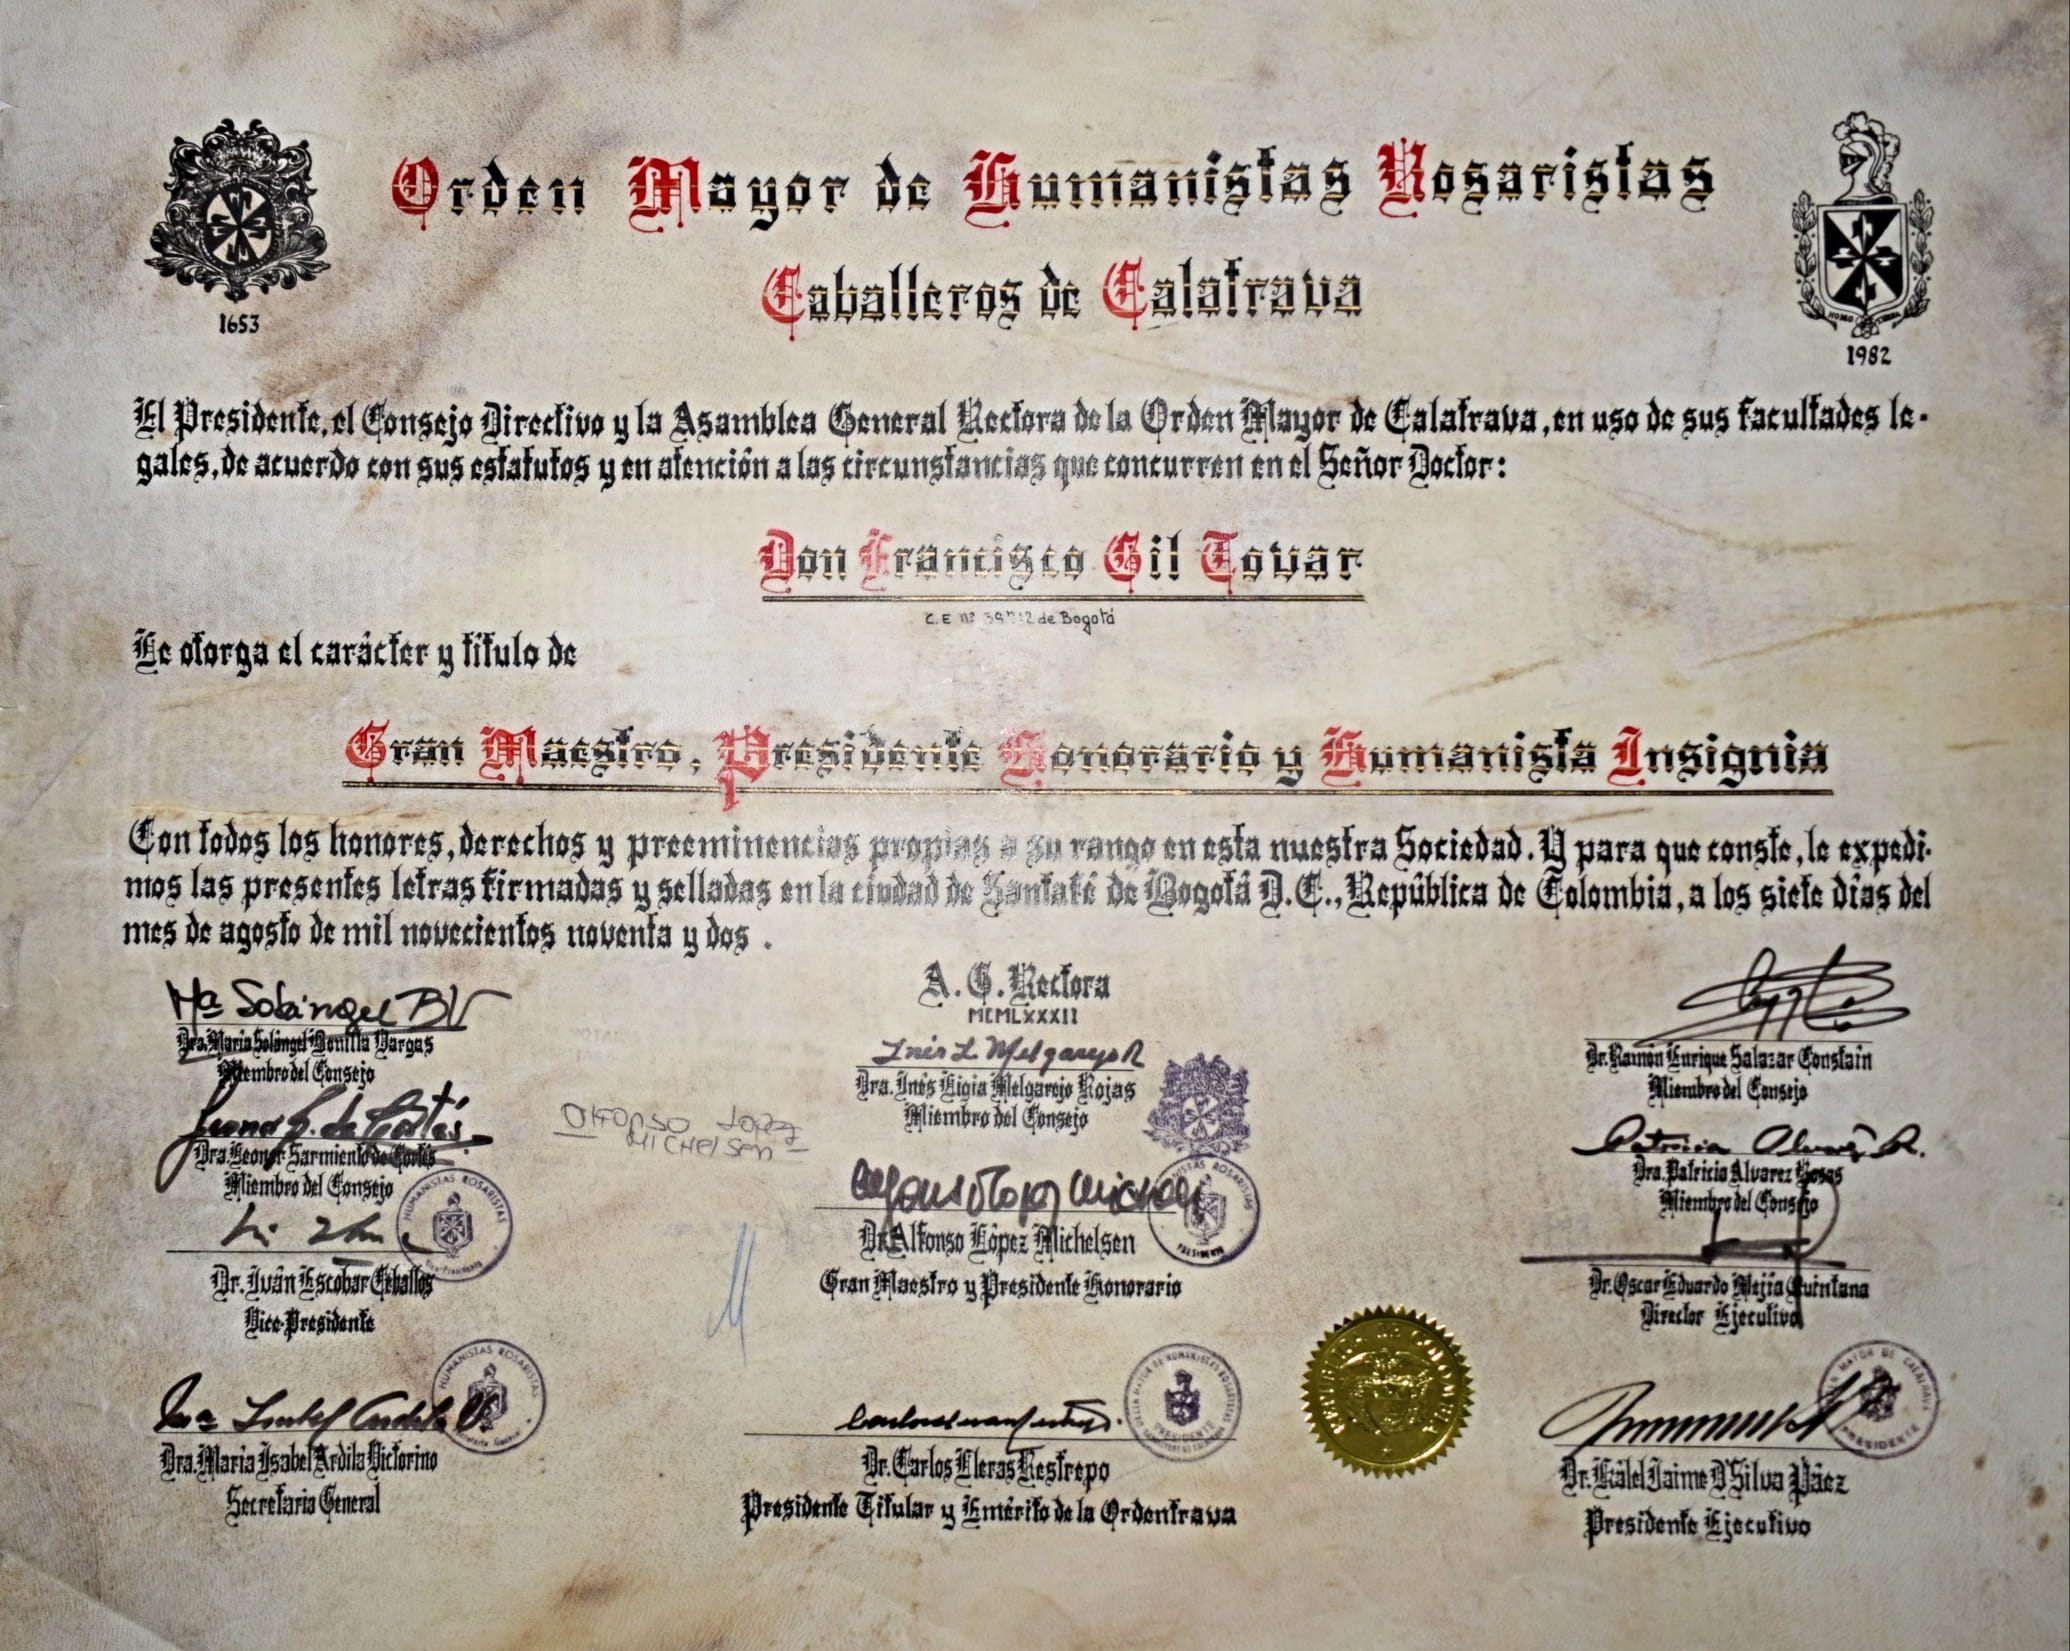 Orden Mayor de Humanistas Rosaristas
Caballeros de Calatrava
1653
1982
El Presidente, el Consejo Directivo y la Asamblea General Rectora de la Orden Mayor de Calatrava, en uso de sus facultades le-
gales, de acuerdo con sus estatutos y en atención a las circunstancias que concurren en el Señor Doctor:
Don Francisco Gil Tovar
C.E nº de Bogotá
Le otorga el carácter y título de
Gran Maestro, Presidente Honorario y Humanista Insignia
Con todos los honores, derechos y preeminencias propias a su rango en esta nuestra Sociedad. Y para que conste, le expedi-
mos las presentes letras firmadas y selladas en la ciudad de Santafé de Bogotá D.C., República de Colombia, a los siete días del
mes de agosto de mil novecientos noventa y dos.
A. G. Rectora
MCMLXXXII
Mª Solángel BV
Dra. María Solángel Bonilla Vargas
Miembro del Consejo
Inés L. Melgarejo R
Dra. Inés Ligia Melgarejo Rojas
Miembro del Consejo
Dr. Ramón Enrique Salazar Constaín
Miembro del Consejo
Dra. Leonor Sarmiento de Cortés
Miembro del Consejo
Alfonso Lopez
Michelsen
Alfonso Lopez Michelsen
Dr. Alfonso López Michelsen
Gran Maestro y Presidente Honorario
Patricia Alvarez R.
Dra. Patricia Alvarez Rosas
Miembro del Consejo
HUMANISTAS ROSARISTAS
Dr. Iván Escobar Ceballos
Vice-Presidente
HUMANISTAS ROSARISTAS
PRESIDENTE
Dr. Oscar Eduardo Mejía Quintana
Director Ejecutivo
HUMANISTAS ROSARISTAS
Secretaria General
Dra. María Isabel Ardila Victorino
Secretaria General
ORDEN MAYOR DE HUMANISTAS ROSARISTAS
PRESIDENTE
Dr. Carlos Lleras Restrepo
Presidente Titular y Emérito de la Ordentrava
REPUBLICA DE COLOMBIA
MAYOR DE CALATRAVA
PRESIDENTE
Dr. Kálel Jaime D'Silva Páez
Presidente Ejecutivo